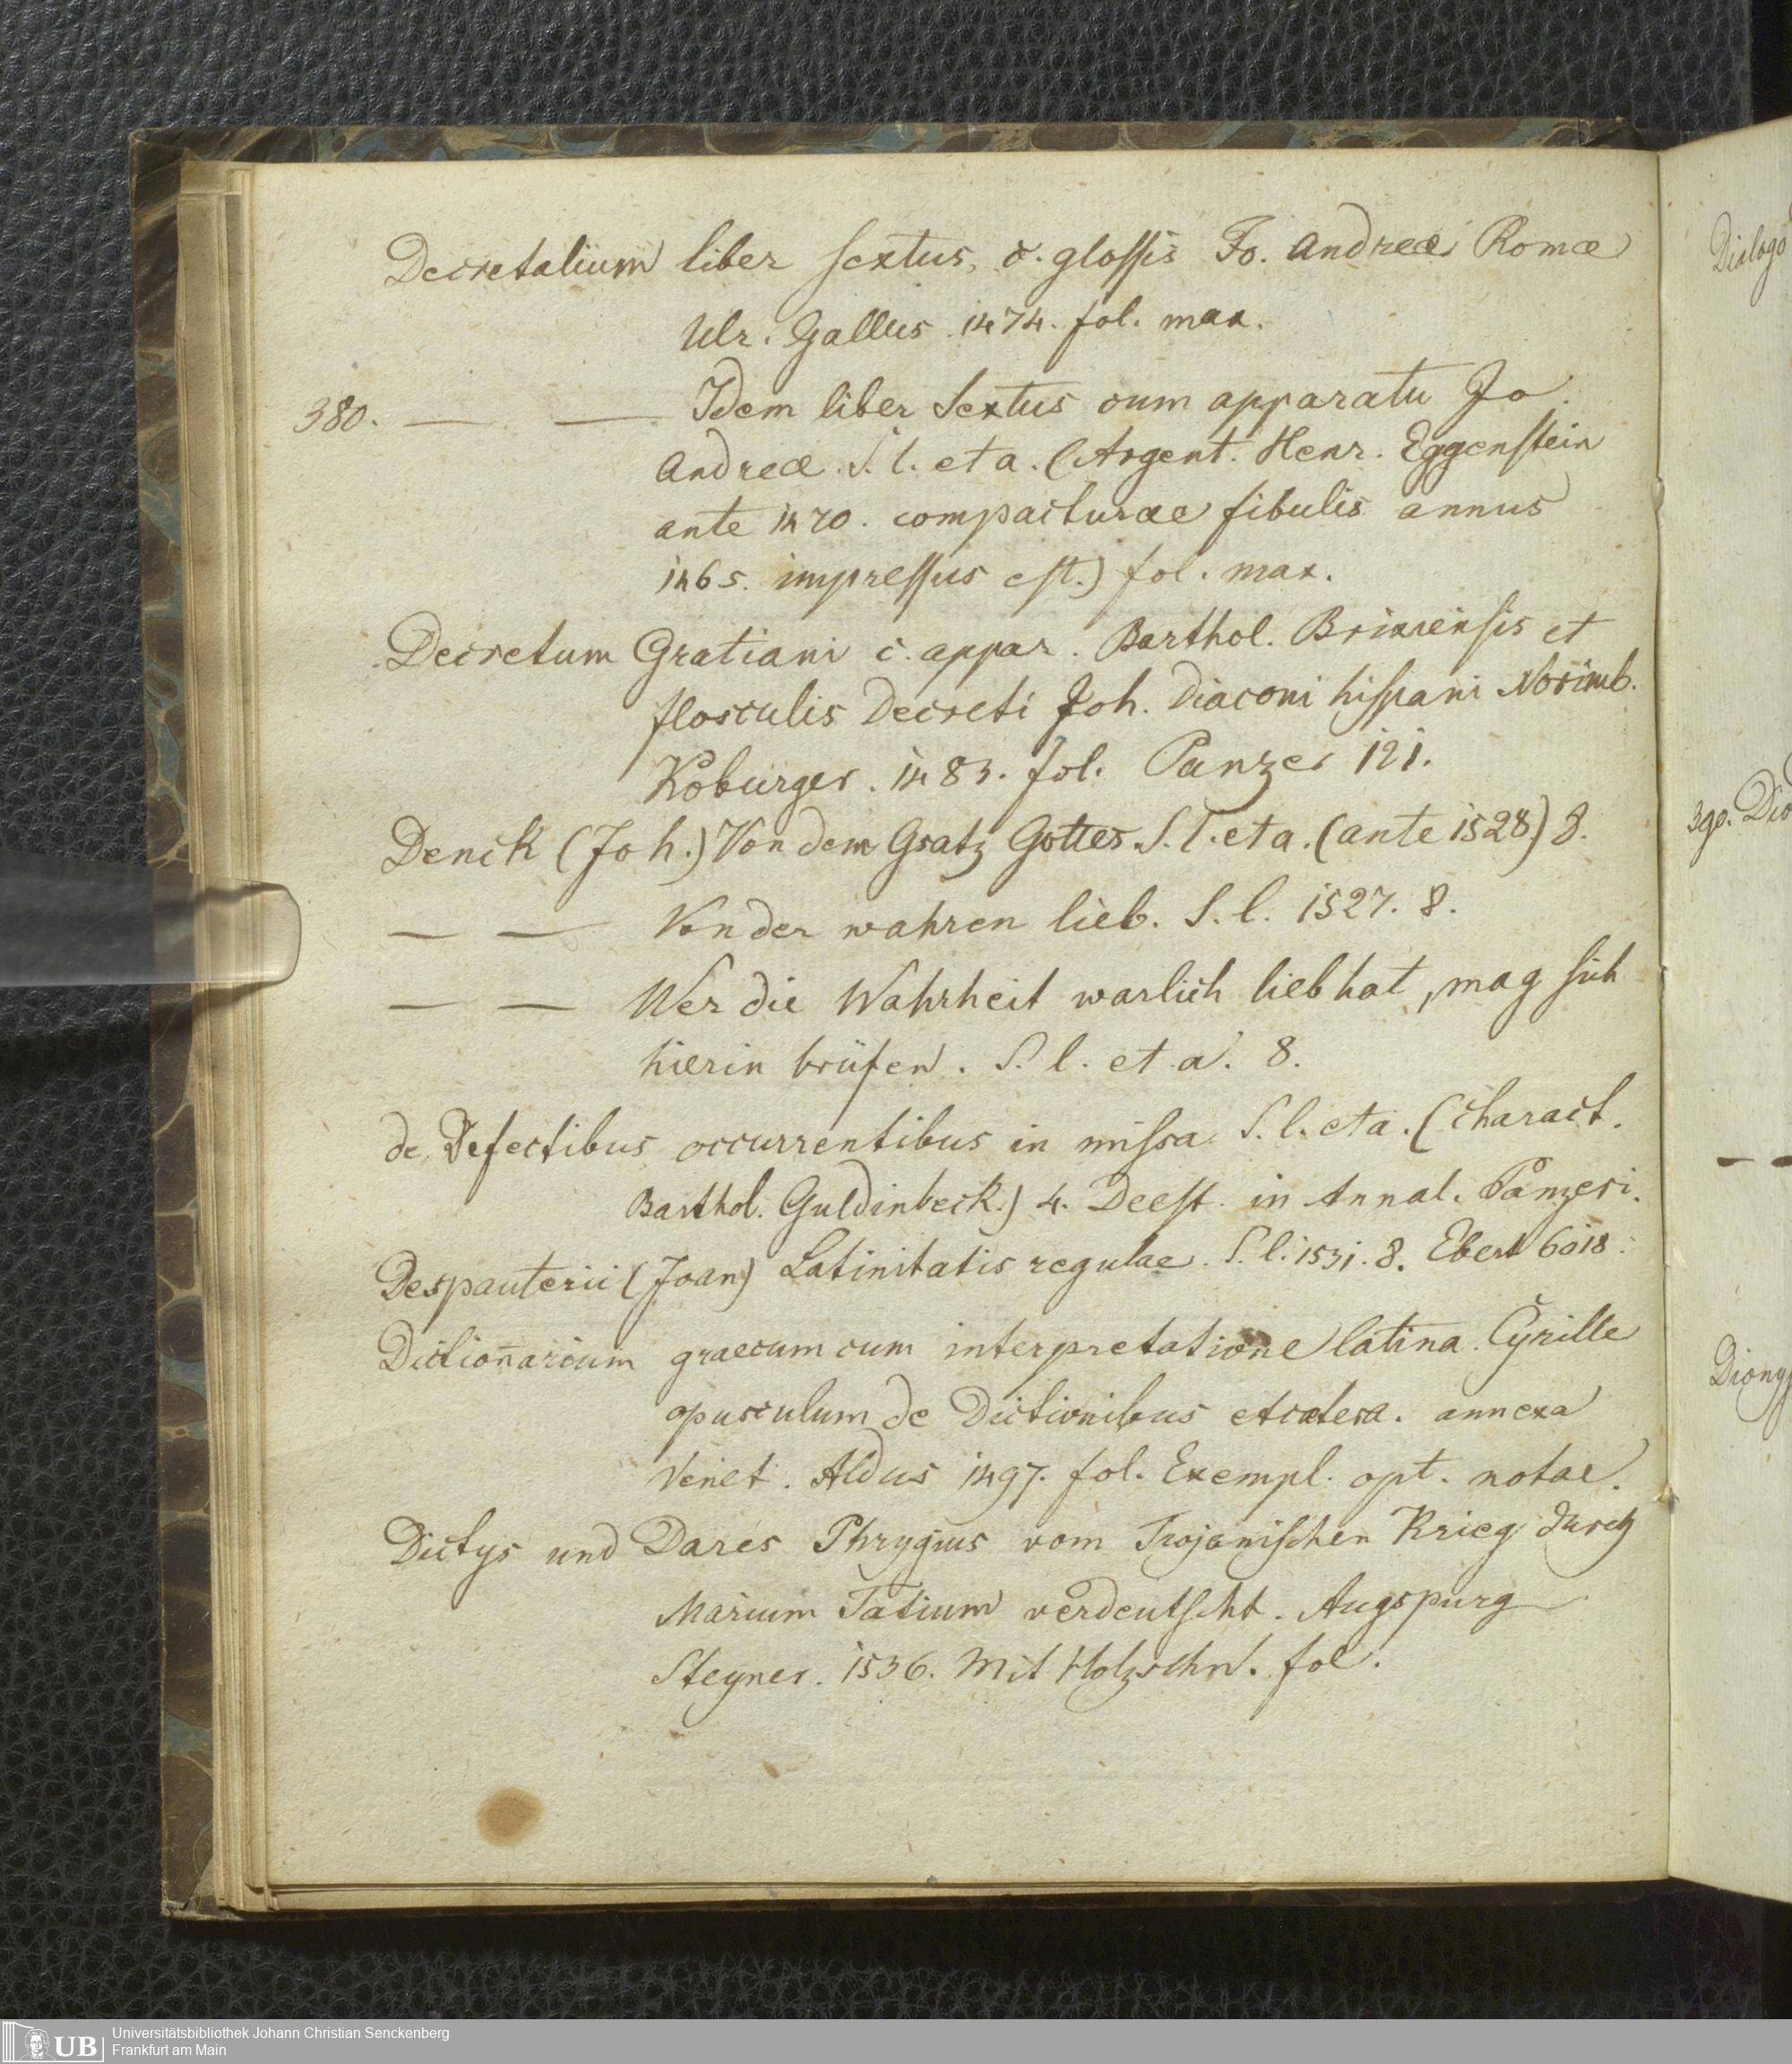 Decretalium liber sextus, c. glossis Jo. Andreæ Romæ
Ulr. Gallus 1474. fol. max.
380. — — Idem liber Sextus cum apparatu Jo.
Andreæ. S. l. et a. (Argent. Henr. Eggenstein
ante 1470. compacturae fibulis annus
1465. impressus est.) fol. max.
Decretum Gratiani c. appar. Barthol. Brixiensis et
flosculis Decreti Joh. Diaconi hispani Norimb.
Koburger. 1483. fol. Panzer 121.
Denck (Joh.) Von dem Gsatz Gottes. S. l. et a. (ante 1528) 8.
— — Von der wahren lieb. S. l. 1527. 8.
— — Wer die Wahrheit warlich lieb hat, mag sich
hierin brüfen. S. l. et a. 8.
de Defectibus occurrentibus in missa. S. l. et a. (charact.
Barthol. Guldinbeck.) 4. Deest in Annal. Panzeri.
Despauterii (Joan) Latinitatis regulae. S. l. 1531. 8. Ebert 6018.
Dictionarium graecum cum interpretatione latina. Cyrille
opusculum de Dictionibus etcætera. annexa
Venet. Aldus 1497. fol. Exempl. opt. notae.
Dictys und Dares Phrygius vom Trojanischen Krieg durch
Marcum Tatium verdeutscht. Augspurg
Steyner. 1536. Mit Holzschn. fol.
Dialogo
390. Dio
—
Dionys
UB
Universitätsbibliothek Johann Christian Senckenberg
Frankfurt am Main